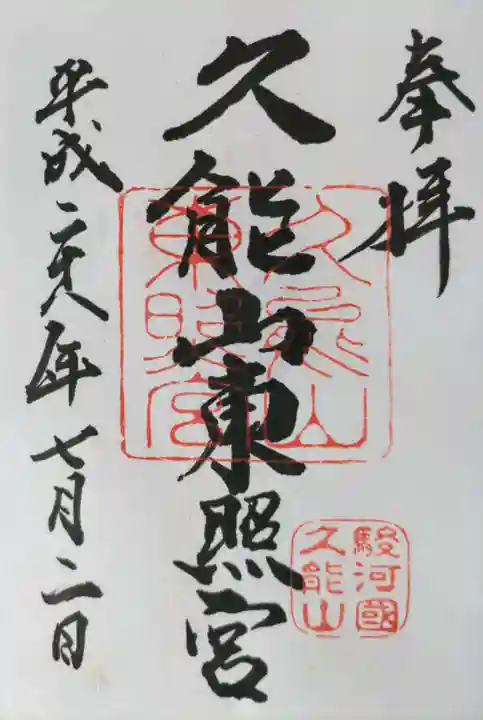 奉拝
久能山東照宮
久能山
東照宮
駿河國
久能山
平成二十八年七月二日